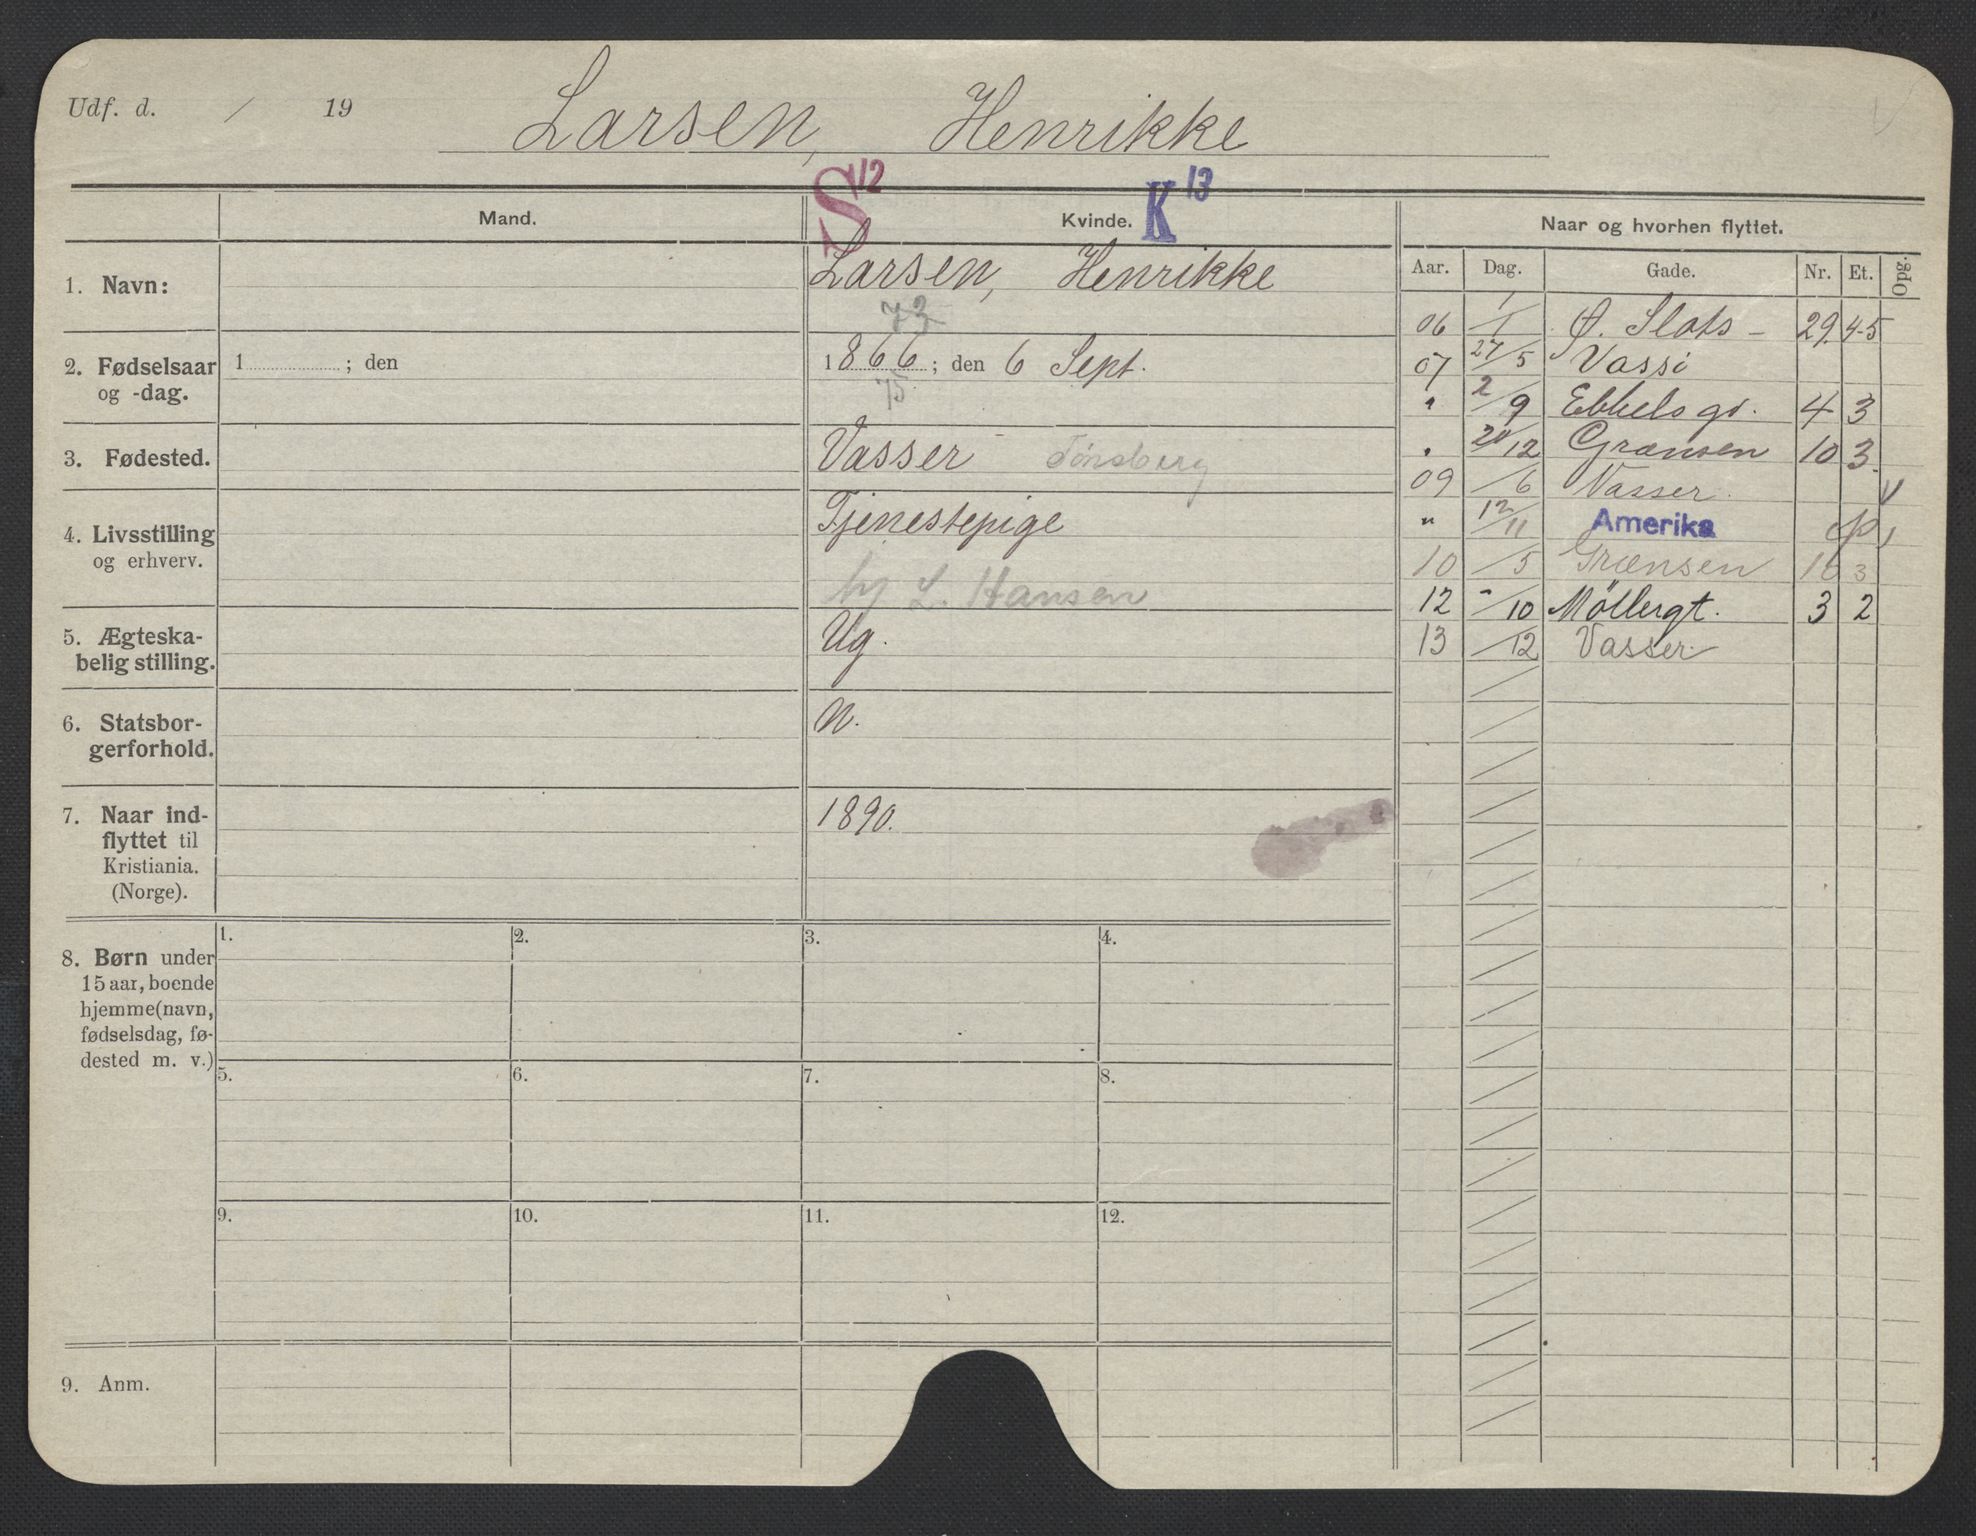 Udf. d. / 19
Larsen, Henrikke
S 12
K 13
Mand.
Kvinde.
Naar og hvorhen flyttet.
Aar. Dag. Gade. Nr. Et. Opg.
1. Navn:
Larsen, Henrikke
73
2. Fødselsaar
og -dag.
1 ; den
1866; den 6 Sept.
75
3. Fødested.
Vasser Tønsberg
4. Livsstilling
og erhverv.
Tjenestepige
hj L. Hansen
5. Ægteska-
belig stilling.
Ug.
6. Statsbor-
gerforhold.
N.
7. Naar ind-
flyttet til
Kristiania.
(Norge).
1890.
06 1/1 Ø. Slots- 29. 4-5
07 27/5 Vassi
" 2/9 Ebbelsgd. 4 3
" 28/12 Grænsen 10 3
09 /6 Vasser. v
" 12/11 Amerika
10 /5 Grænsen 10 3
12 -/10 Møllergt. 3 2
13 /12 Vasser.
8. Børn under
15 aar, boende
hjemme (navn,
fødselsdag, fø-
dested m. v.)
1. 2. 3. 4.
5. 6. 7. 8.
9. 10. 11. 12.
9. Anm.